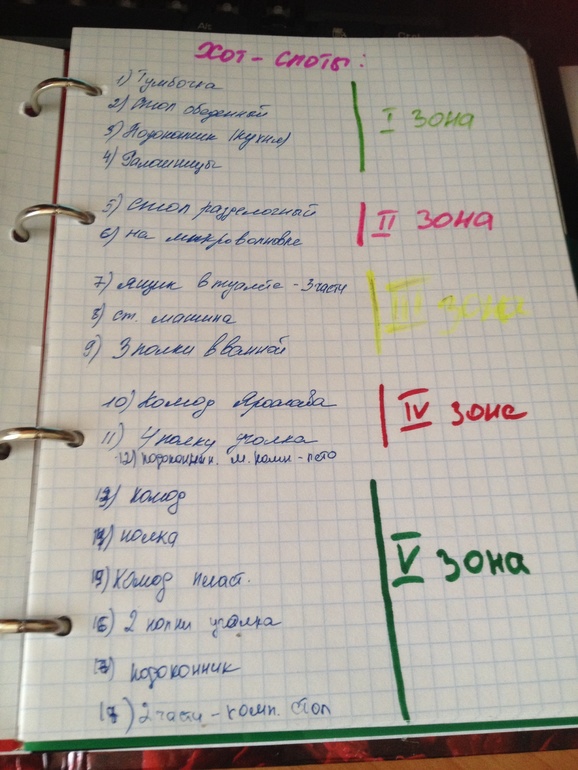 Хот-споты:
1) Тумбочка
2) Стол обеденный
3) Подоконник (кухня)
4) Галошницы
I зона
5) Стол разделочный
6) на микроволновке
II зона
7) ящик в туалете - 3 части
8) ст. машина
9) 3 полки в ванной
III зона
10) Комод
11) 4 полки уголка
12) подоконник. м. комн -
IV зона
13) комод
14) полка
15) Комод пласт.
16) 2 полки уголка
подоконник
2 части - комп. стол
V зона